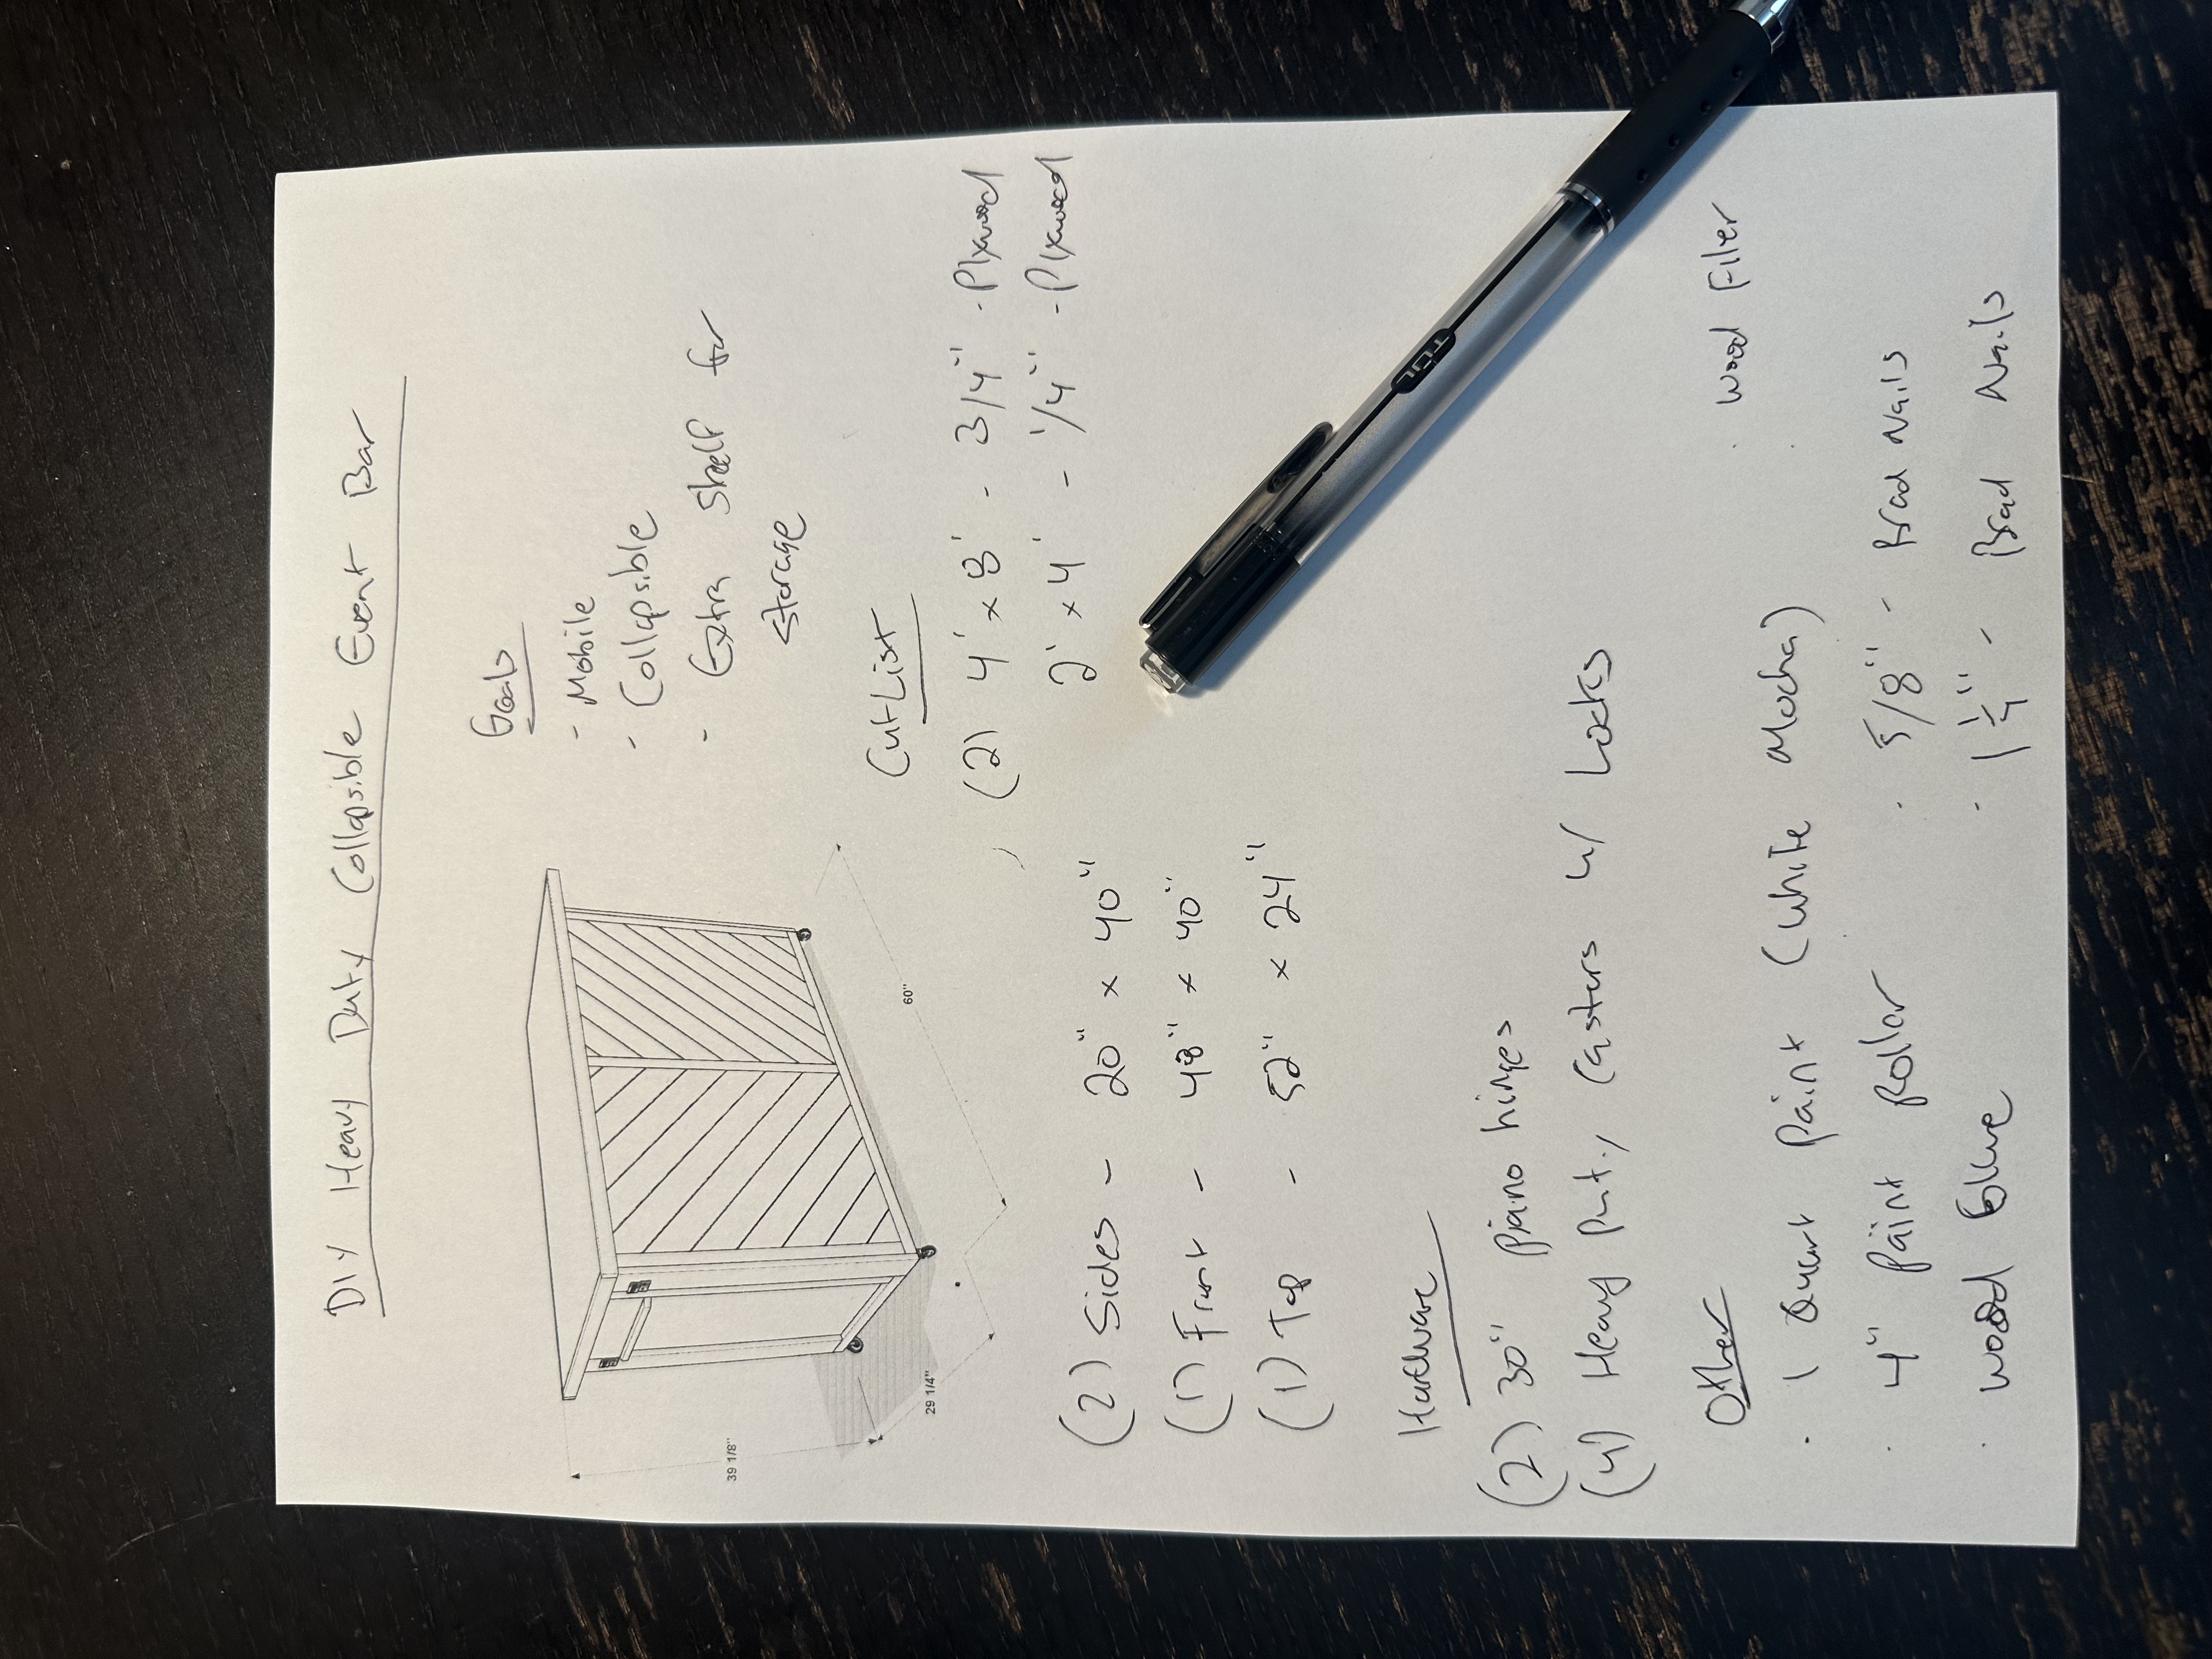 DIY Heavy Duty Collapsible Event Bar
39 1/8"
29 1/4"
60"
Goals
- Mobile
- Collapsible
- Extra shelf for
storage
Cut List
(2) 4' x 8' - 3/4" - Plywood
2' x 4' - 1/4" - Plywood
(2) Sides - 20" x 40"
(1) Front - 48" x 40"
(1) Top - 52" x 24"
Hardware
(2) 30" Piano hinges
(4) Heavy Duty Casters w/ Locks
Other
· 1 Quart Paint (White Mocha)
· 4" Paint Roller
· Wood Glue
· Wood Filler
· 5/8" - Brad Nails
· 1 1/4" - Brad Nails
TUL